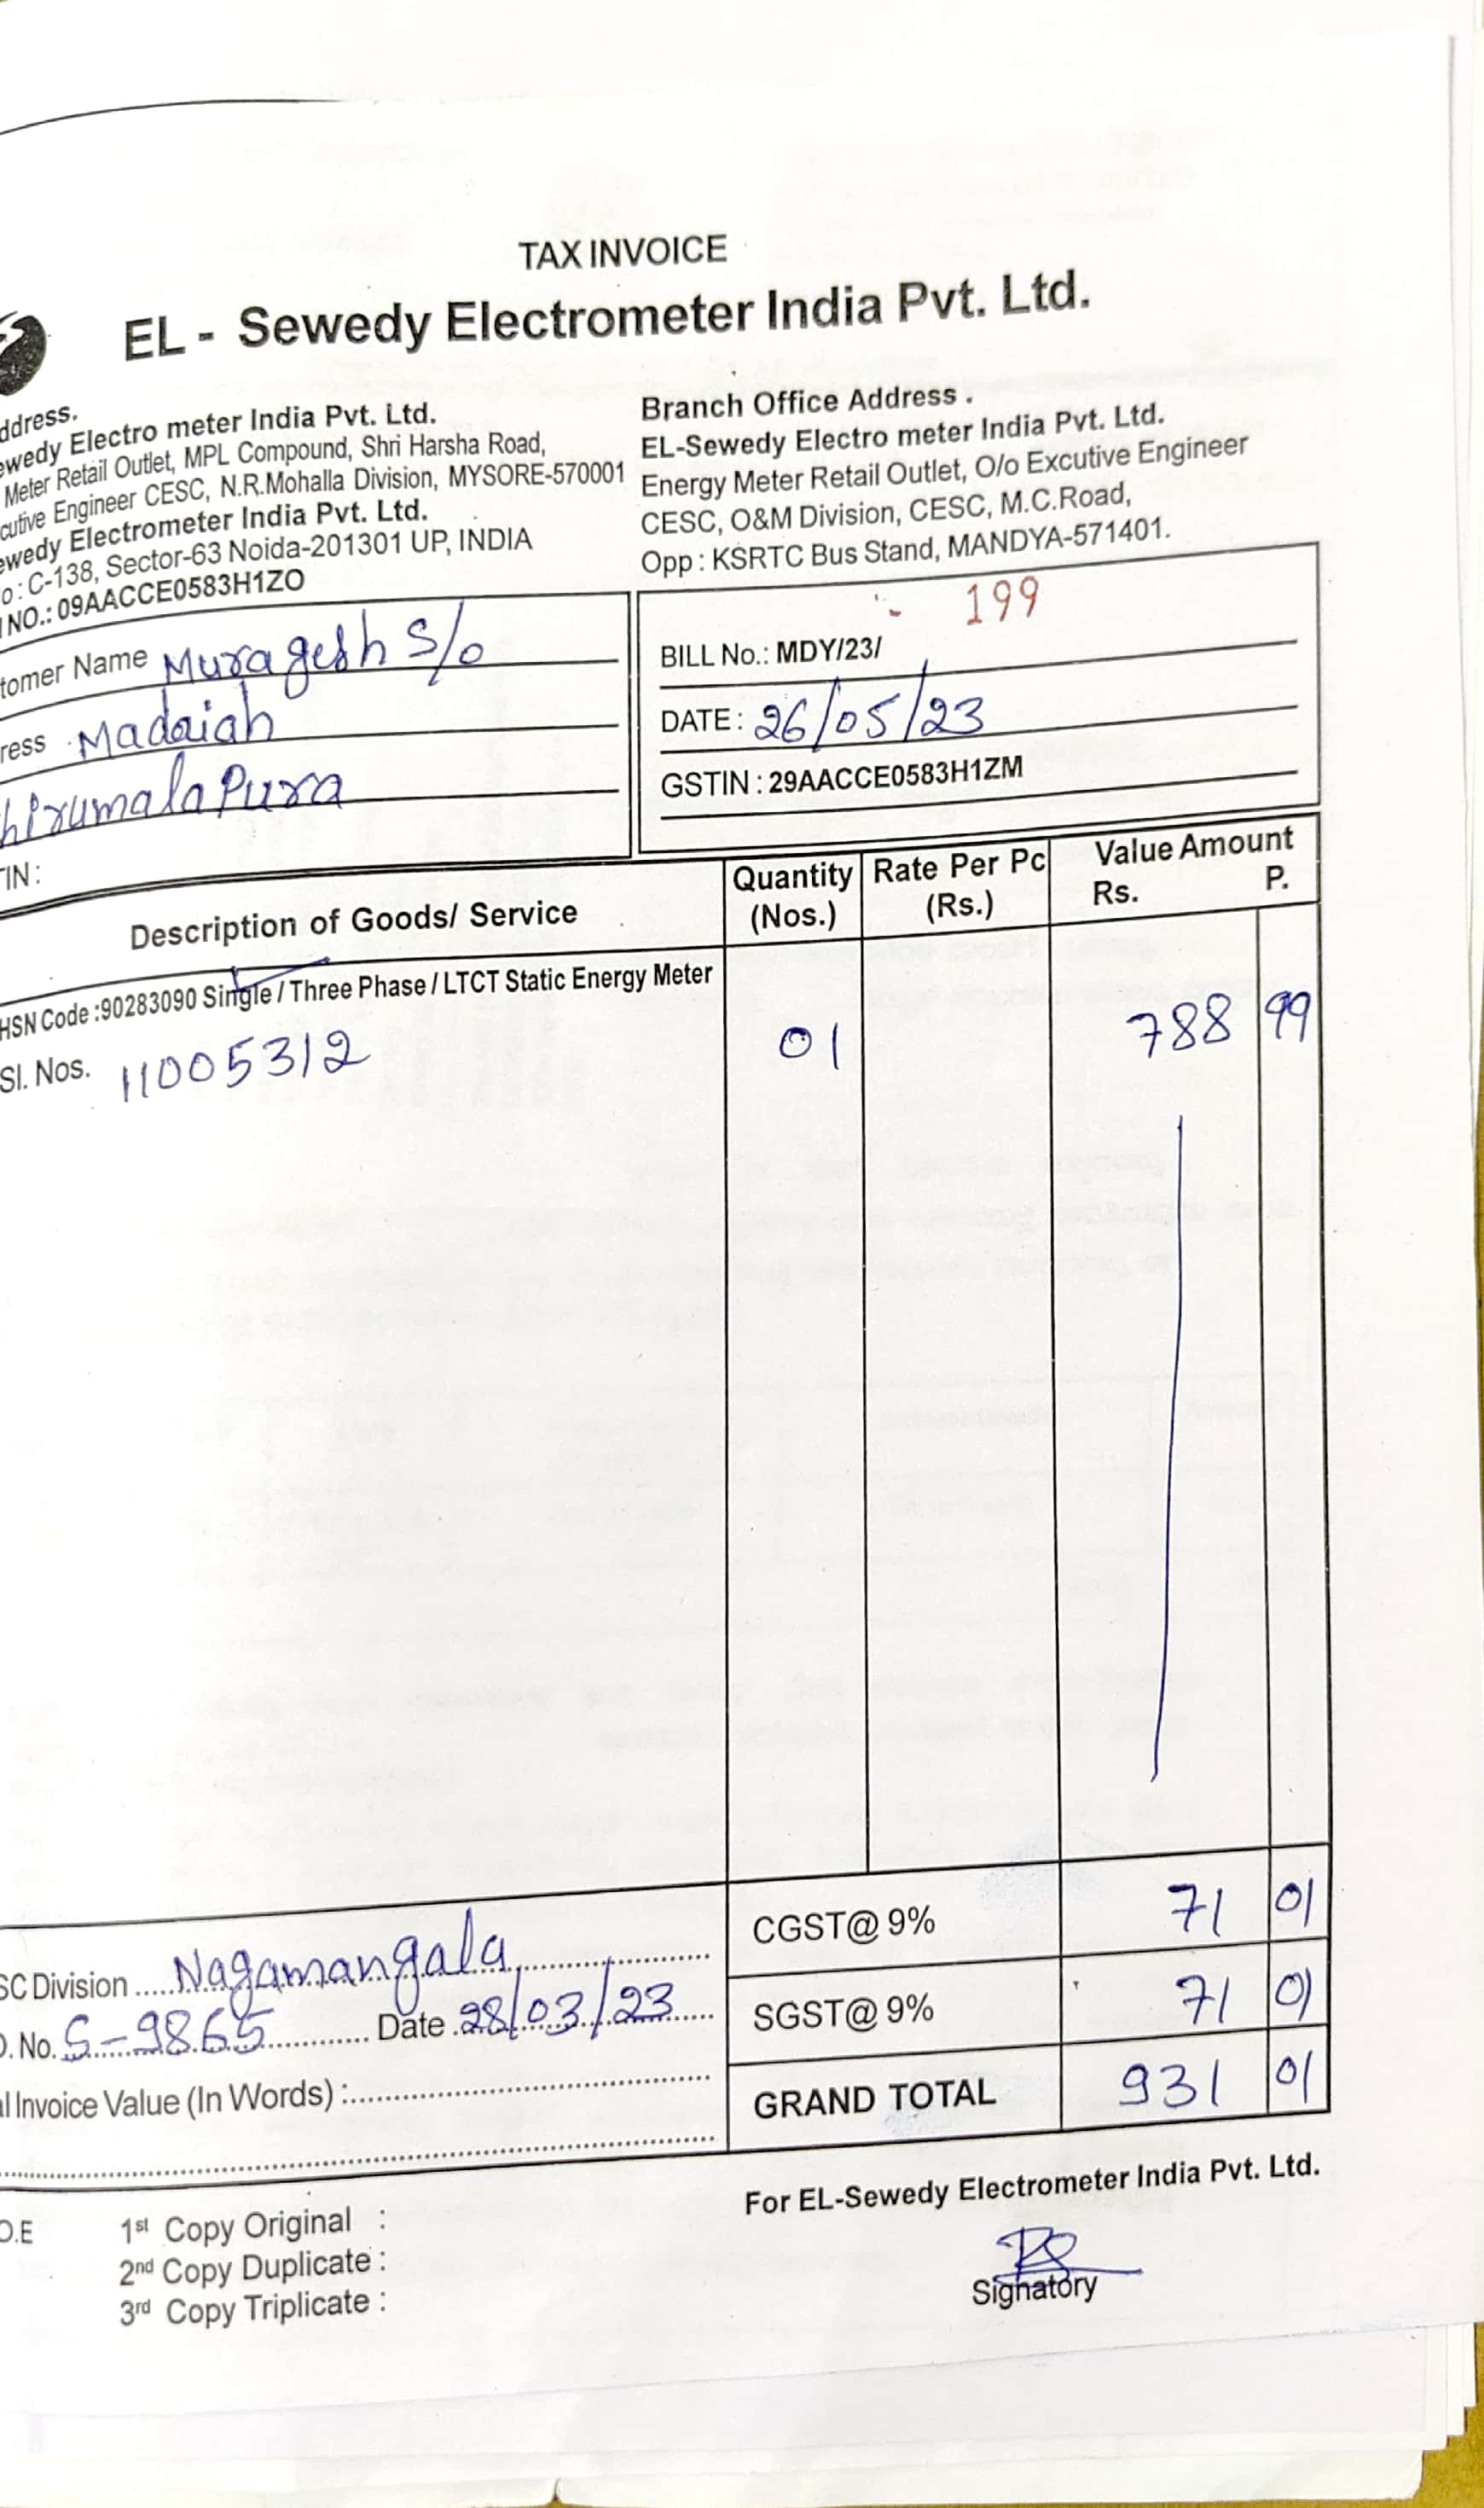 TAX INVOICE
EL - Sewedy Electrometer India Pvt. Ltd.
ddress.
ewedy Electro meter India Pvt. Ltd.
Meter Retail Outlet, MPL Compound, Shri Harsha Road,
cutive Engineer CESC, N.R.Mohalla Division, MYSORE-570001
ewedy Electrometer India Pvt. Ltd.
o : C-138, Sector-63 Noida-201301 UP, INDIA
NO.: 09AACCE0583H1ZO
Branch Office Address .
EL-Sewedy Electro meter India Pvt. Ltd.
Energy Meter Retail Outlet, O/o Excutive Engineer
CESC, O&M Division, CESC, M.C.Road,
Opp : KSRTC Bus Stand, MANDYA-571401.
tomer Name Muragesh S/o
ress Madaiah
hirumalaPura
TIN :
BILL No.: MDY/23/ 199
DATE : 26/05/23
GSTIN : 29AACCE0583H1ZM
Description of Goods/ Service Quantity (Nos.) Rate Per Pc (Rs.) Value Amount Rs. P.
HSN Code :90283090 Single / Three Phase / LTCT Static Energy Meter
Sl. Nos. 11005312 01 788 99
CGST@ 9% 71 01
SC Division ..... Nagamangala
SGST@ 9% 71 01
O. No. S-9865 Date 28/03/23
GRAND TOTAL 931 01
al Invoice Value (In Words) :
For EL-Sewedy Electrometer India Pvt. Ltd.
O.E 1st Copy Original :
2nd Copy Duplicate :
3rd Copy Triplicate :
Signatory